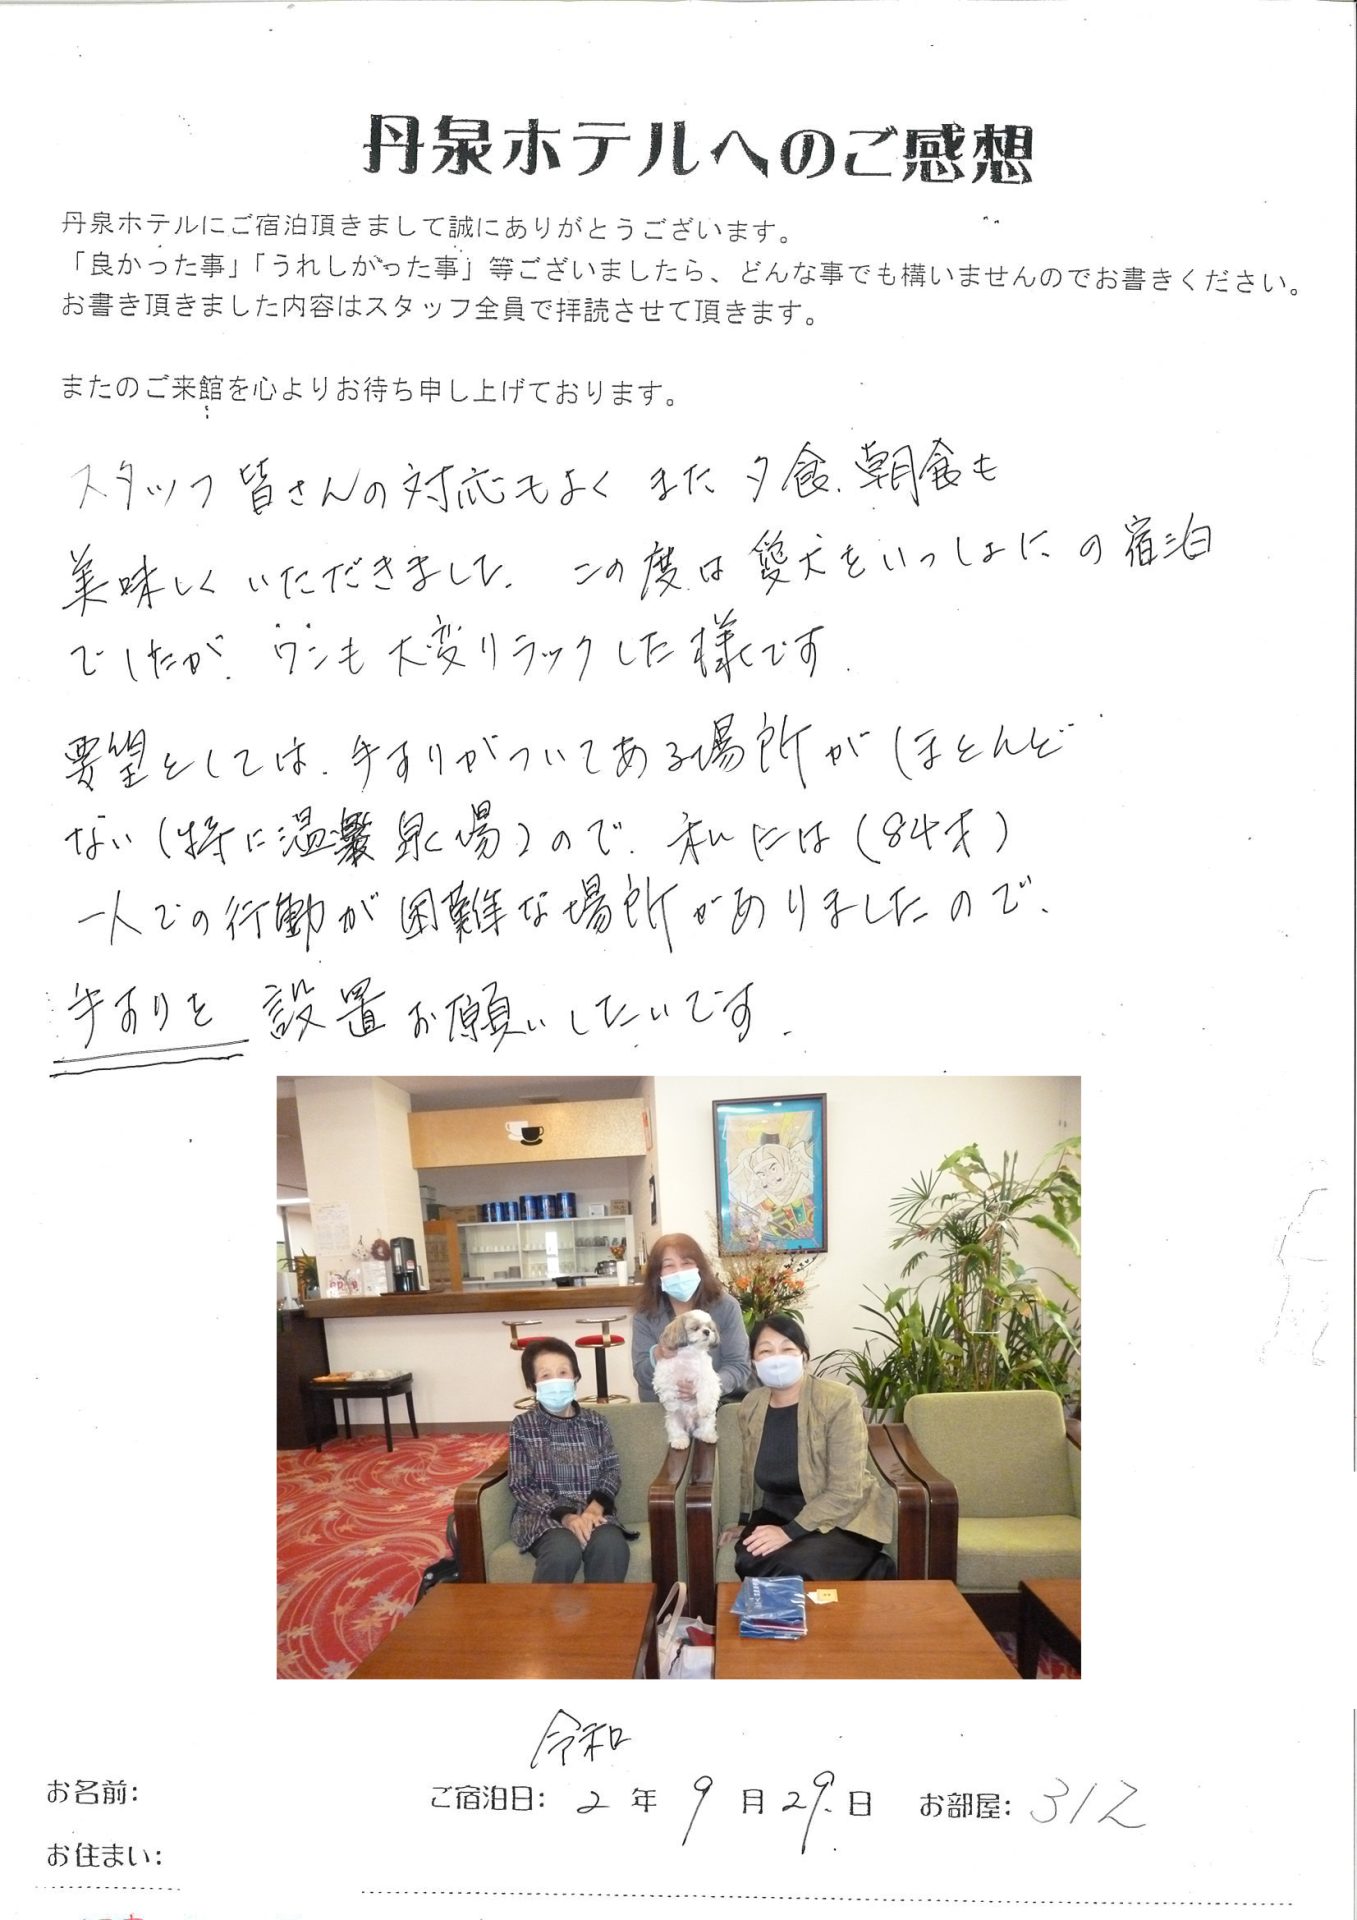 丹泉ホテルへのご感想
丹泉ホテルにご宿泊頂きまして誠にありがとうございます。
「良かった事」「うれしかった事」等ございましたら、どんな事でも構いませんのでお書きください。
お書き頂きました内容はスタッフ全員で拝読させて頂きます。
またのご来館を心よりお待ち申し上げております。
スタッフ皆さんの対応もよく また夕食、朝食も
美味しくいただきました。この度は愛犬をいっしょにの宿泊
でしたが、ワンも大変リラックした様です。
要望としては、手すりがついてある場所がほとんど
ない(特に温泉場)ので、私には(84才)
一人での行動が困難な場所がありましたので、
手すりを 設置お願いしたいです。
令和
お名前: ご宿泊日: 2年 9月 29日 お部屋: 312
お住まい: